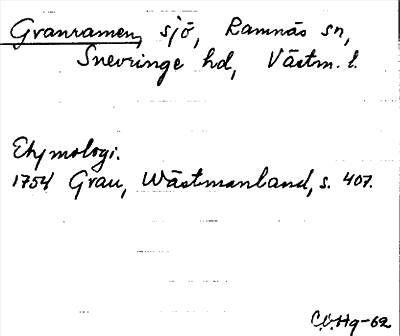 Granramen, sjö, Ramnäs sn,
Snevringe hd, Västm. l.
Etymologi.
1754 Grau, Wästmanland, s. 407.
C.O.Hg-62